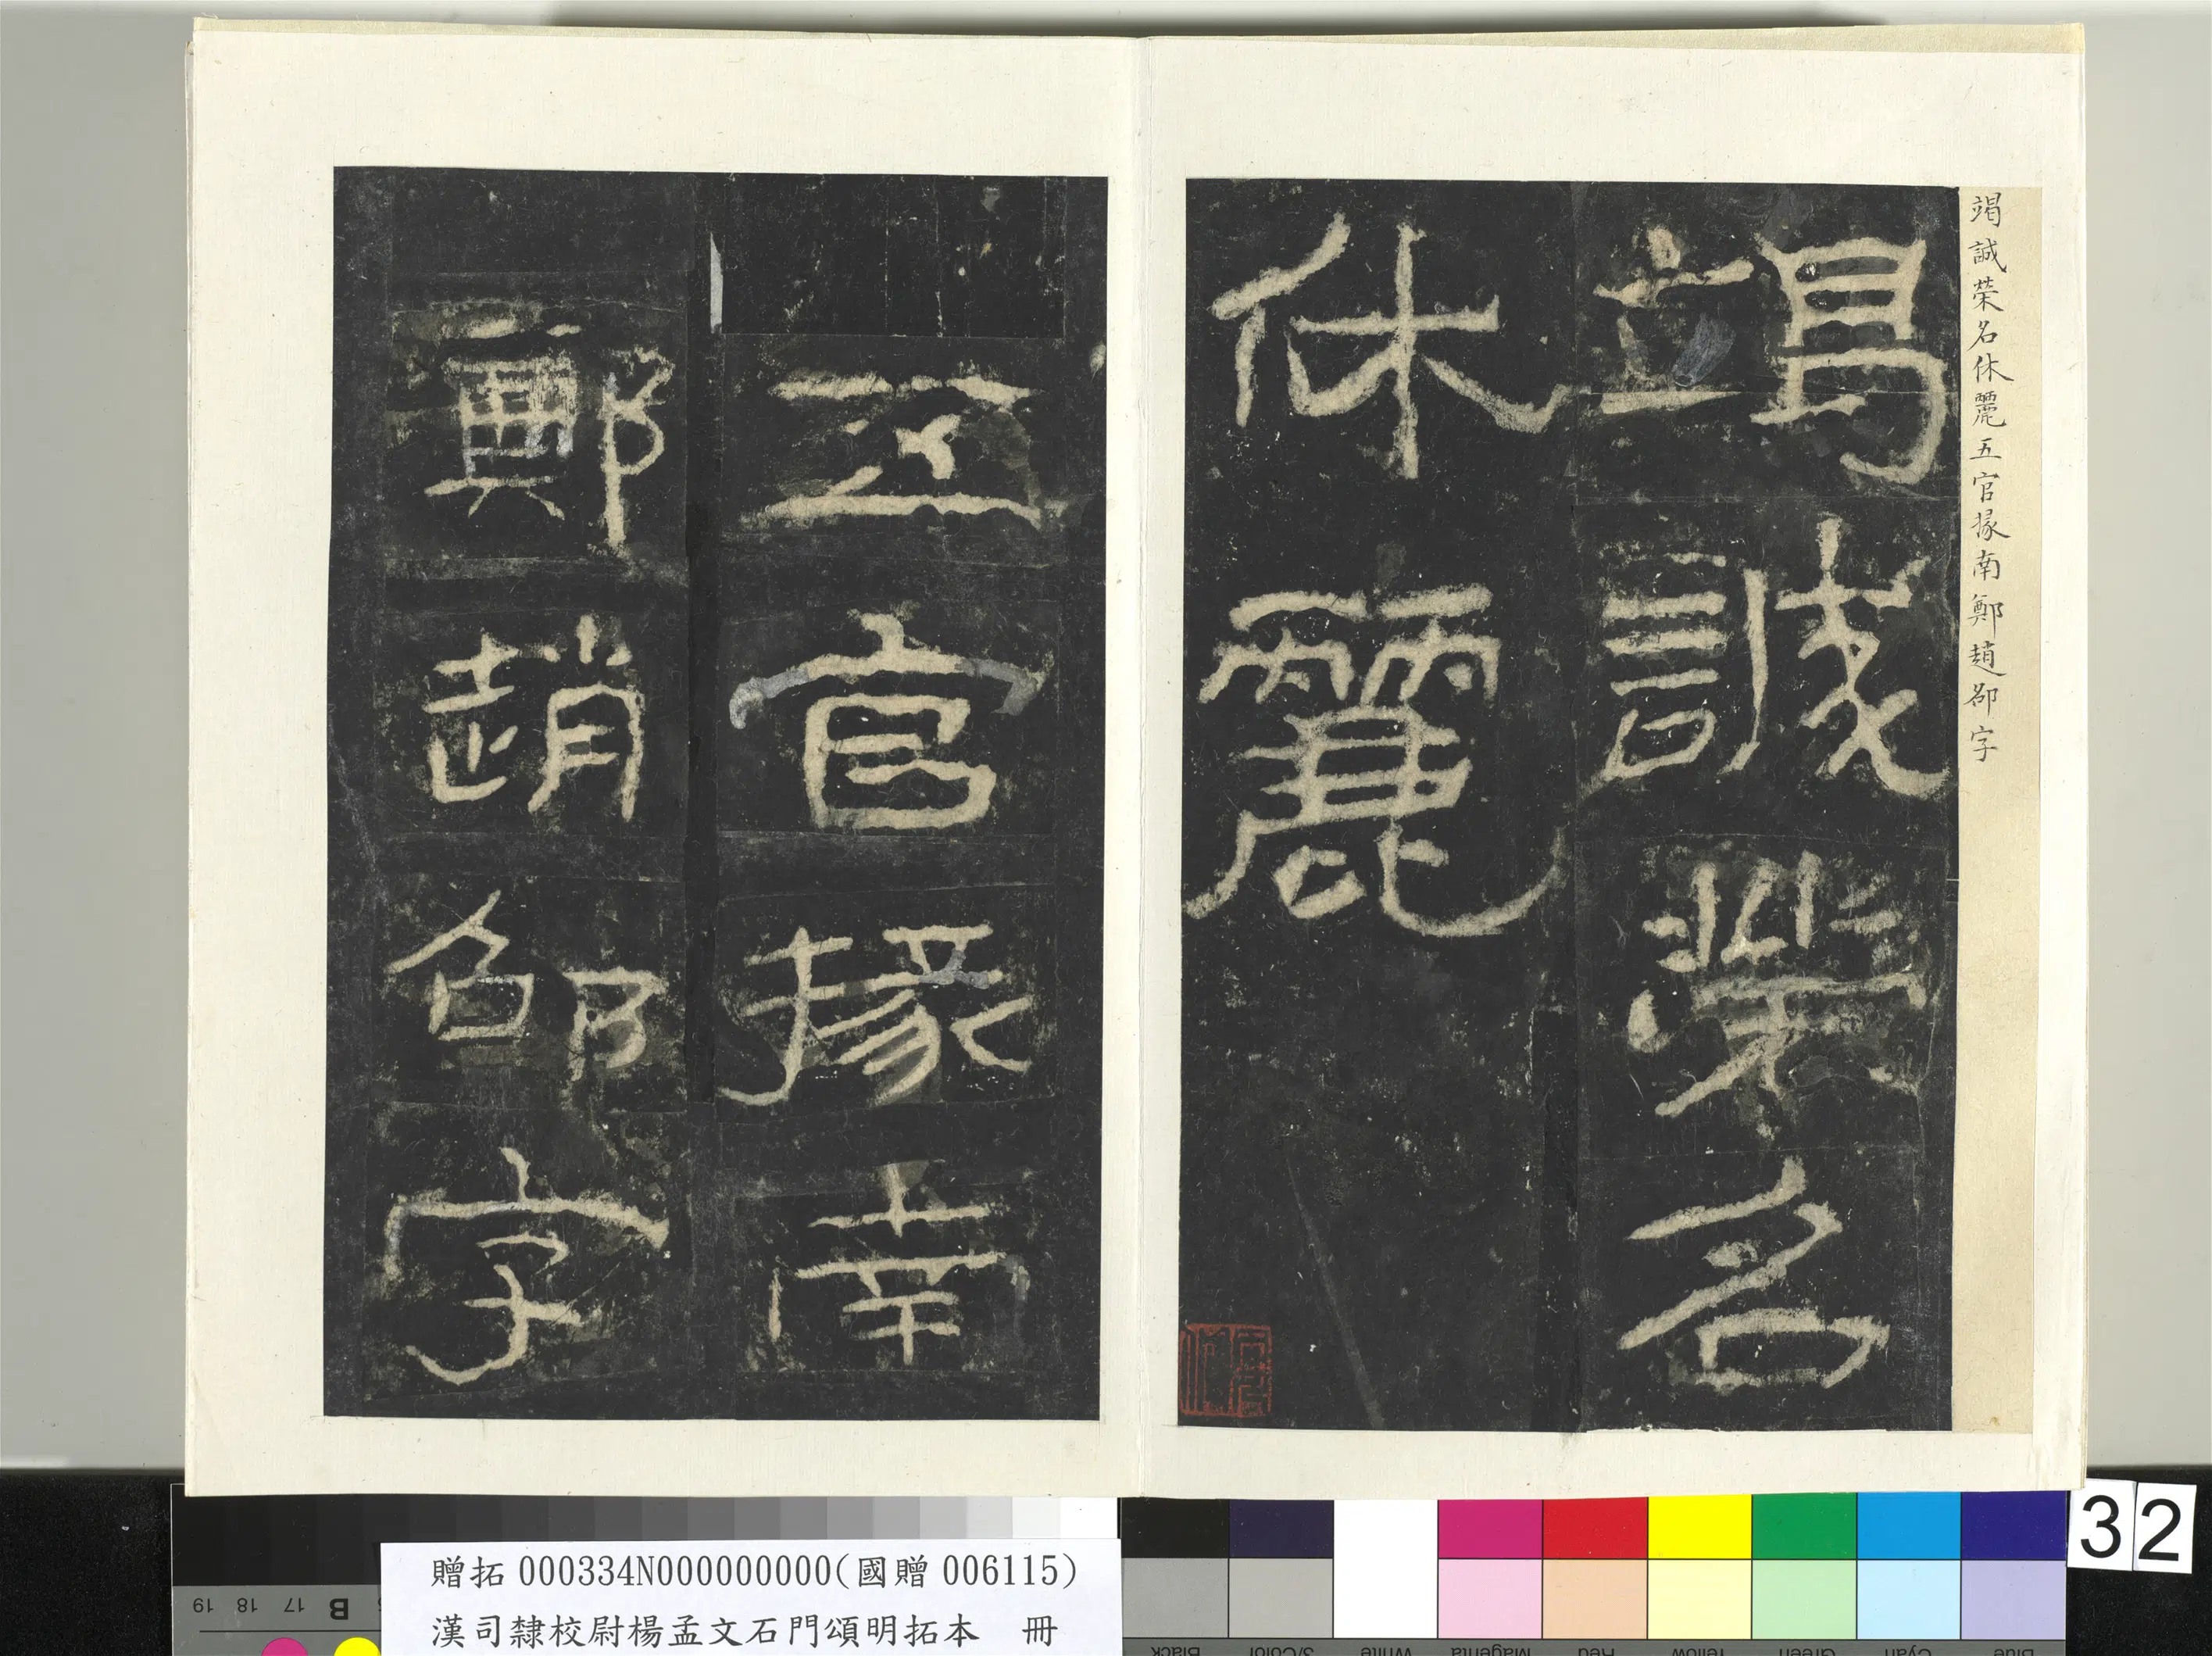 竭誠榮名休麗五官掾南鄭趙邵字
竭誠榮名
休麗
五官掾南
鄭趙邵字
32
贈拓 000334N000000000(國贈 006115)
漢司隸校尉楊孟文石門頌明拓本 冊
19 18 17 B
Black 3/Color White Magenta Red Yellow Green Cyan Blue